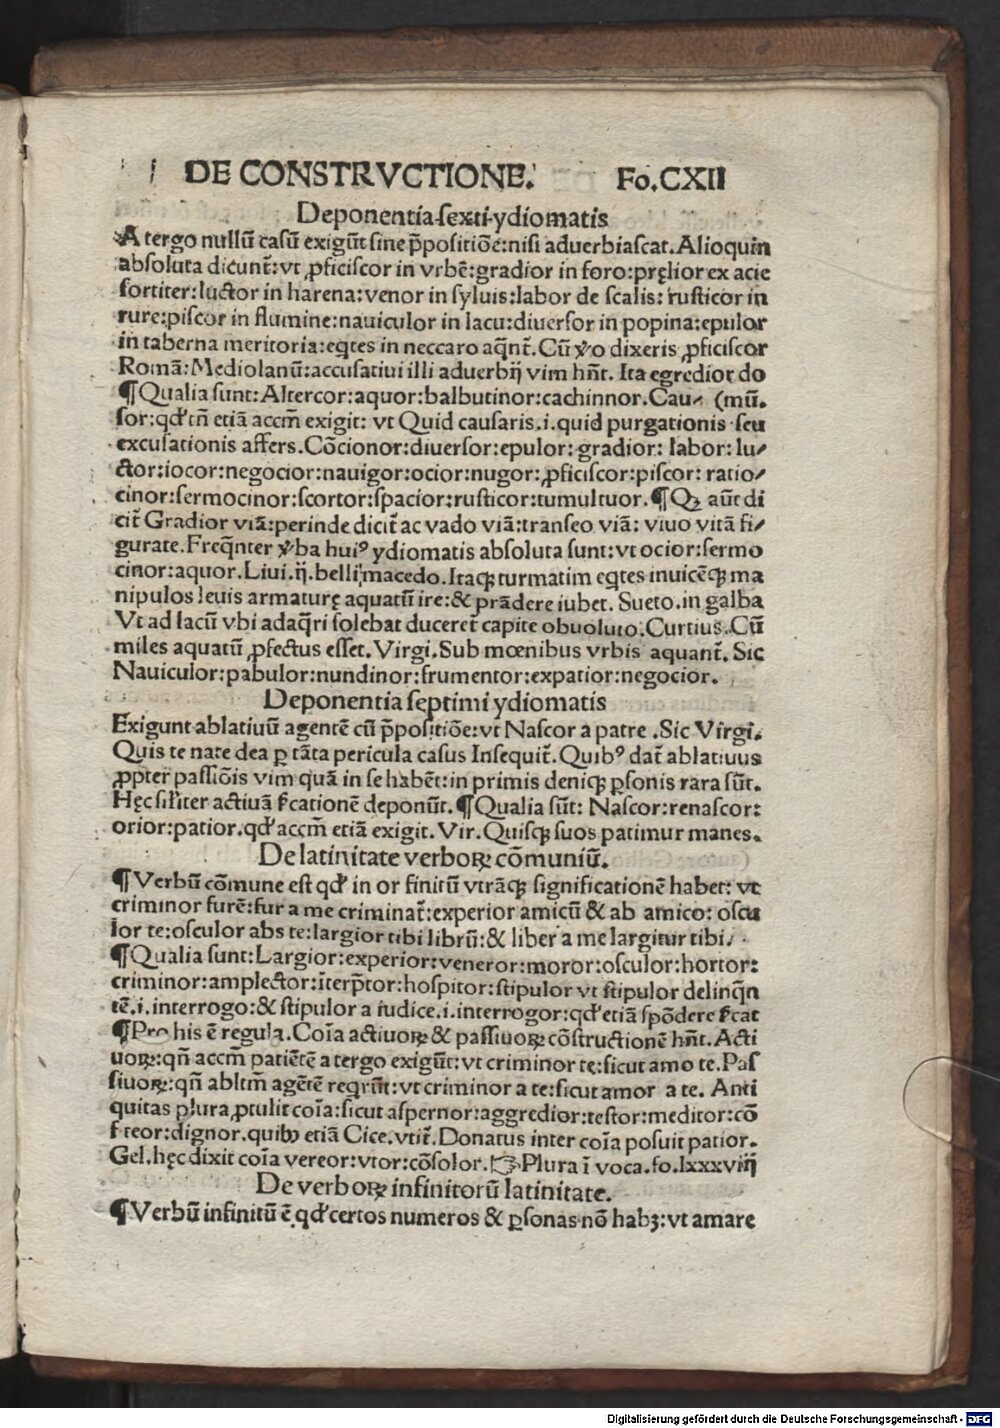 DE CONSTRVCTIONE. Fo.CXII
Deponentia sexti ydiomatis
A tergo nullũ casũ exigũt sine p̃positiõe: nisi aduerbiascat. Alioquin
absoluta dicunt̃: vt ꝓficiscor in vrbẽ: gradior in foro: pręlior ex acie
fortiter: luctor in harena: venor in syluis: labor de scalis: rusticor in
rure: piscor in flumine: nauiculor in lacu: diuersor in popina: epulor
in taberna meritoria: eq̃tes in neccaro aq̃nt̃. Cũ ꝟo dixeris ꝓficiscor
Romã: Mediolanũ: accusatiui illi aduerbij vim hñt. Ita egredior do
¶Qualia sunt: Altercor: aquor: balbutinor: cachinnor. Cau⸗ (mũ.
sor: qđ tñ etiã accm̃ exigit: vt Quid causaris .i. quid purgationis seu
excusationis affers. Cõcionor: diuersor: epulor: gradior: labor: lu⸗
ctor: iocor: negocior: nauigor: ocior: nugor: ꝓficiscor: piscor: ratio⸗
cinor: sermocinor: scortor: spacior: rusticor: tumultuor. ¶Qꝫ aũt di
cit̃ Gradior viã: perinde dicit̃ ac vado viã: transeo viã: viuo vitã fi⸗
gurate. Freq̃nter ꝟba huiꝰ ydiomatis absoluta sunt: vt ocior: sermo
cinor: aquor. Liui. ij. belli macedo. Itaqꝫ turmatim eq̃tes inuicẽqꝫ ma
nipulos leuis armaturę aquatũ ire: & prãdere iubet. Sueto. in galba
Vt ad lacũ vbi adaq̃ri solebat duceret̃ capite obuoluto. Curtius. Cũ
miles aquatũ ꝓfectus esset. Virgi. Sub mœnibus vrbis aquant̃. Sic
Nauiculor: pabulor: nundinor: frumentor: expatior: negocior.
Deponentia septimi ydiomatis
Exigunt ablatiuũ agentẽ cũ p̃positiõe: vt Nascor a patre. Sic Virgi.
Quis te nate dea ꝑ tãta pericula casus Insequit̃. Quibꝰ dat̃ ablatiuus
ꝓpter passiõis vim quã in se habẽt: in primis deniqꝫ ꝑsonis rara sũt.
Hęc sil̃iter actiuã f̃cationẽ deponũt. ¶Qualia sũt: Nascor: renascor:
orior: patior. qđ accm̃ etiã exigit. Vir. Quisqꝫ suos patimur manes.
De latinitate verboꝝ cõmuniũ.
¶Verbũ cõmune est qđ in or finitũ vtrãqꝫ significationẽ habet: vt
criminor furẽ: fur a me criminat̃: experior amicũ & ab amico: oscu
lor te: osculor abs te: largior tibi librũ: & liber a me largitur tibi.
¶Qualia sunt: Largior: experior: veneror: moror: osculor: hortor:
criminor: amplector: ĩterp̃tor: hospitor: stipulor vt stipulor delinq̃n
tẽ .i. interrogo: & stipulor a iudice .i. interrogor: qđ etiã spõdere f̃cat
¶Pro his ẽ regula. Coĩa actiuoꝝ & passiuoꝝ cõstructionẽ hñt. Acti
uoꝝ: qñ accm̃ patiẽtẽ a tergo exigũt: vt criminor te: sicut amo te. Pas
siuoꝝ: qñ abltm̃ agẽtẽ reqrũt: vt criminor a te: sicut amor a te. Anti
quitas plura ꝓtulit coĩa: sicut aspernor: aggredior: testor: meditor: cõ
fiteor: dignor. quibꝰ etiã Cice. vtit̃. Donatus inter coĩa posuit patior.
Gel. hęc dixit coĩa vereor: vtor: cõsolor. ☞Plura ĩ voca. fo. lxxxviij
De verboꝝ infinitorũ latinitate.
¶Verbũ infinitũ ẽ qđ certos numeros & ꝑsonas nõ habꝫ: vt amare
Digitalisierung gefördert durch die Deutsche Forschungsgemeinschaft - DFG